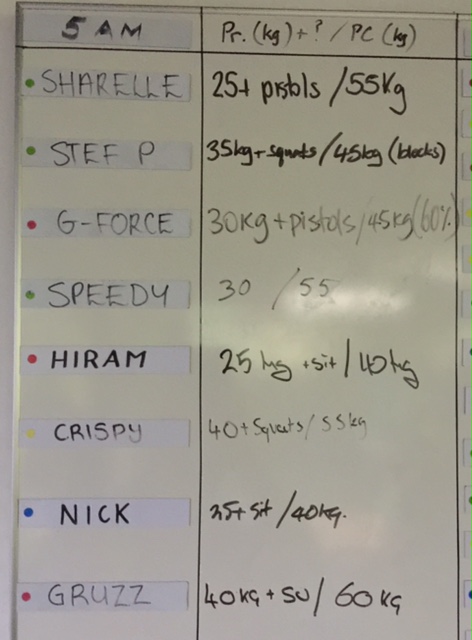 5 AM Pr. (kg) + ? / PC (kg)
SHARELLE 25+ pistols / 55Kg
STEF P 35kg + squats / 45kg (blocks)
G-FORCE 30Kg + pistols / 45Kg (60%)
SPEEDY 30 / 55
HIRAM 25 kg + sit / 40 kg
CRISPY 40 + Squats / 55kg
NICK 25+ sit / 40kg.
GRUZZ 40 KG + SU / 60 KG